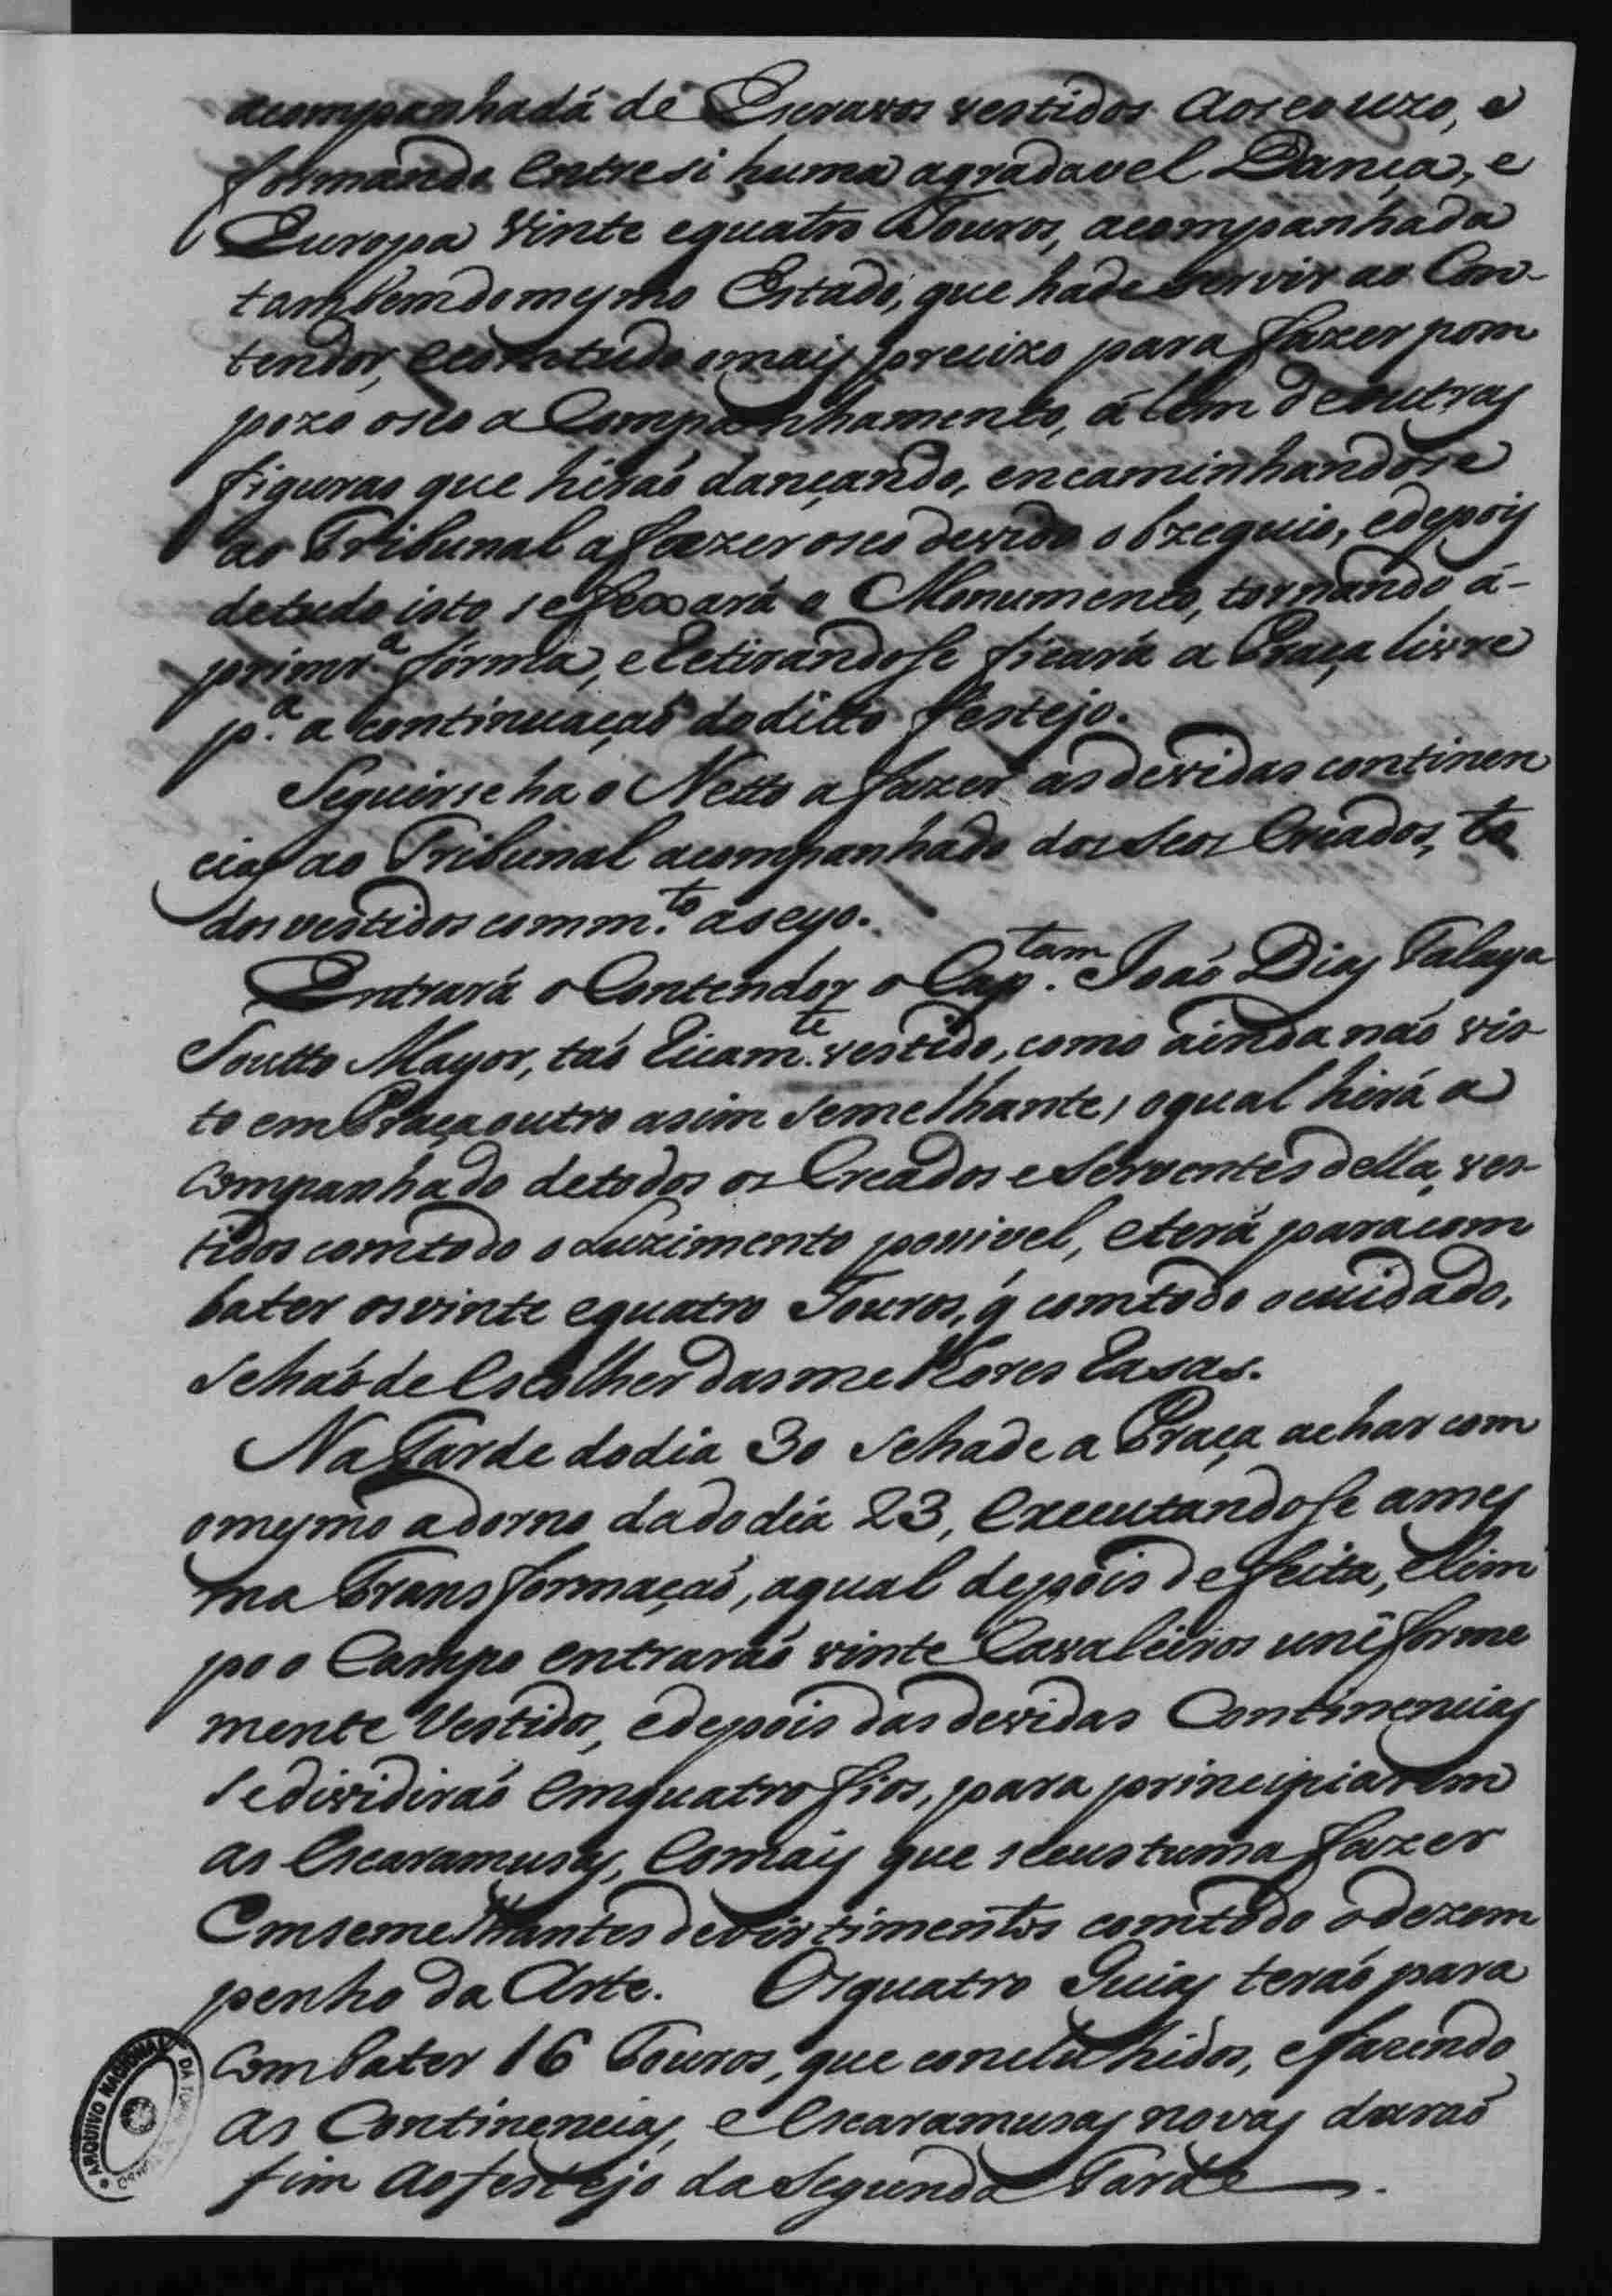 acompanhada de Escravos vestidos ao seo uzo, e
formando entre si huma agradavel Dança, e
Europa Vinte e quatro Touros, acompanhada
tambem do mesmo Estado, que hade servir ao Con-
tendor, e com tudo o mais precizo para fazer pom
pozo o seo a Companhamento, álem de outras
figuras que hiraõ dançando, encaminhandose
ao Tribunal a fazer o seo devido obzequio, e depois
de tudo isto se fexará o Monumento, tornando á-
primr.ª fórma, e Retirandose ficará a Praça livre
p.ª a continuaçaõ do ditto festejo.
Seguirseha o Netto a fazer as devidas continen
cias ao Tribunal acompanhado dos seos Creados, to
dos vestidos com m.to aseyo.
Entrará o Contendor o Cap.tam Joaõ Dias Talaya
Soutto Mayor, taõ Ricam.te vestido, como ainda naõ vis-
to em Praça outro asim semelhante, o qual hirá a
Companhado de todos os Creados e Serventes della, ves-
tidos com todo o Luzimento possivel, e terá para com
bater os vinte e quatro Touros, q̃ com todo o cuidado,
se haõ de Escolher das melhores Rasas.
Na Tarde do dia 30 se hade a Praça achar com
o mesmo adorno da do dia 23, Executandose a mes
ma Transformaçaõ, a qual depois de feita, e lim
po o Campo entraraõ vinte Cavaleiros uniforme
mente Vestidos, e depois das devidas Continencias
se dividiraõ Em quatro fios, para principiarem
as Escaramusas, E o mais que se custuma fazer
Em semelhantes devirtimentos com todo o dezem
penho da Arte. Os quatro Guias teraõ para
Combater 16 Touros, que concluhidos, e fazendo
as Continencias, e Escaramusas novas daraõ
fim ao festejo da Segunda Tarde.
ARQUIVO NACIONAL DA TORRE DO TOMBO